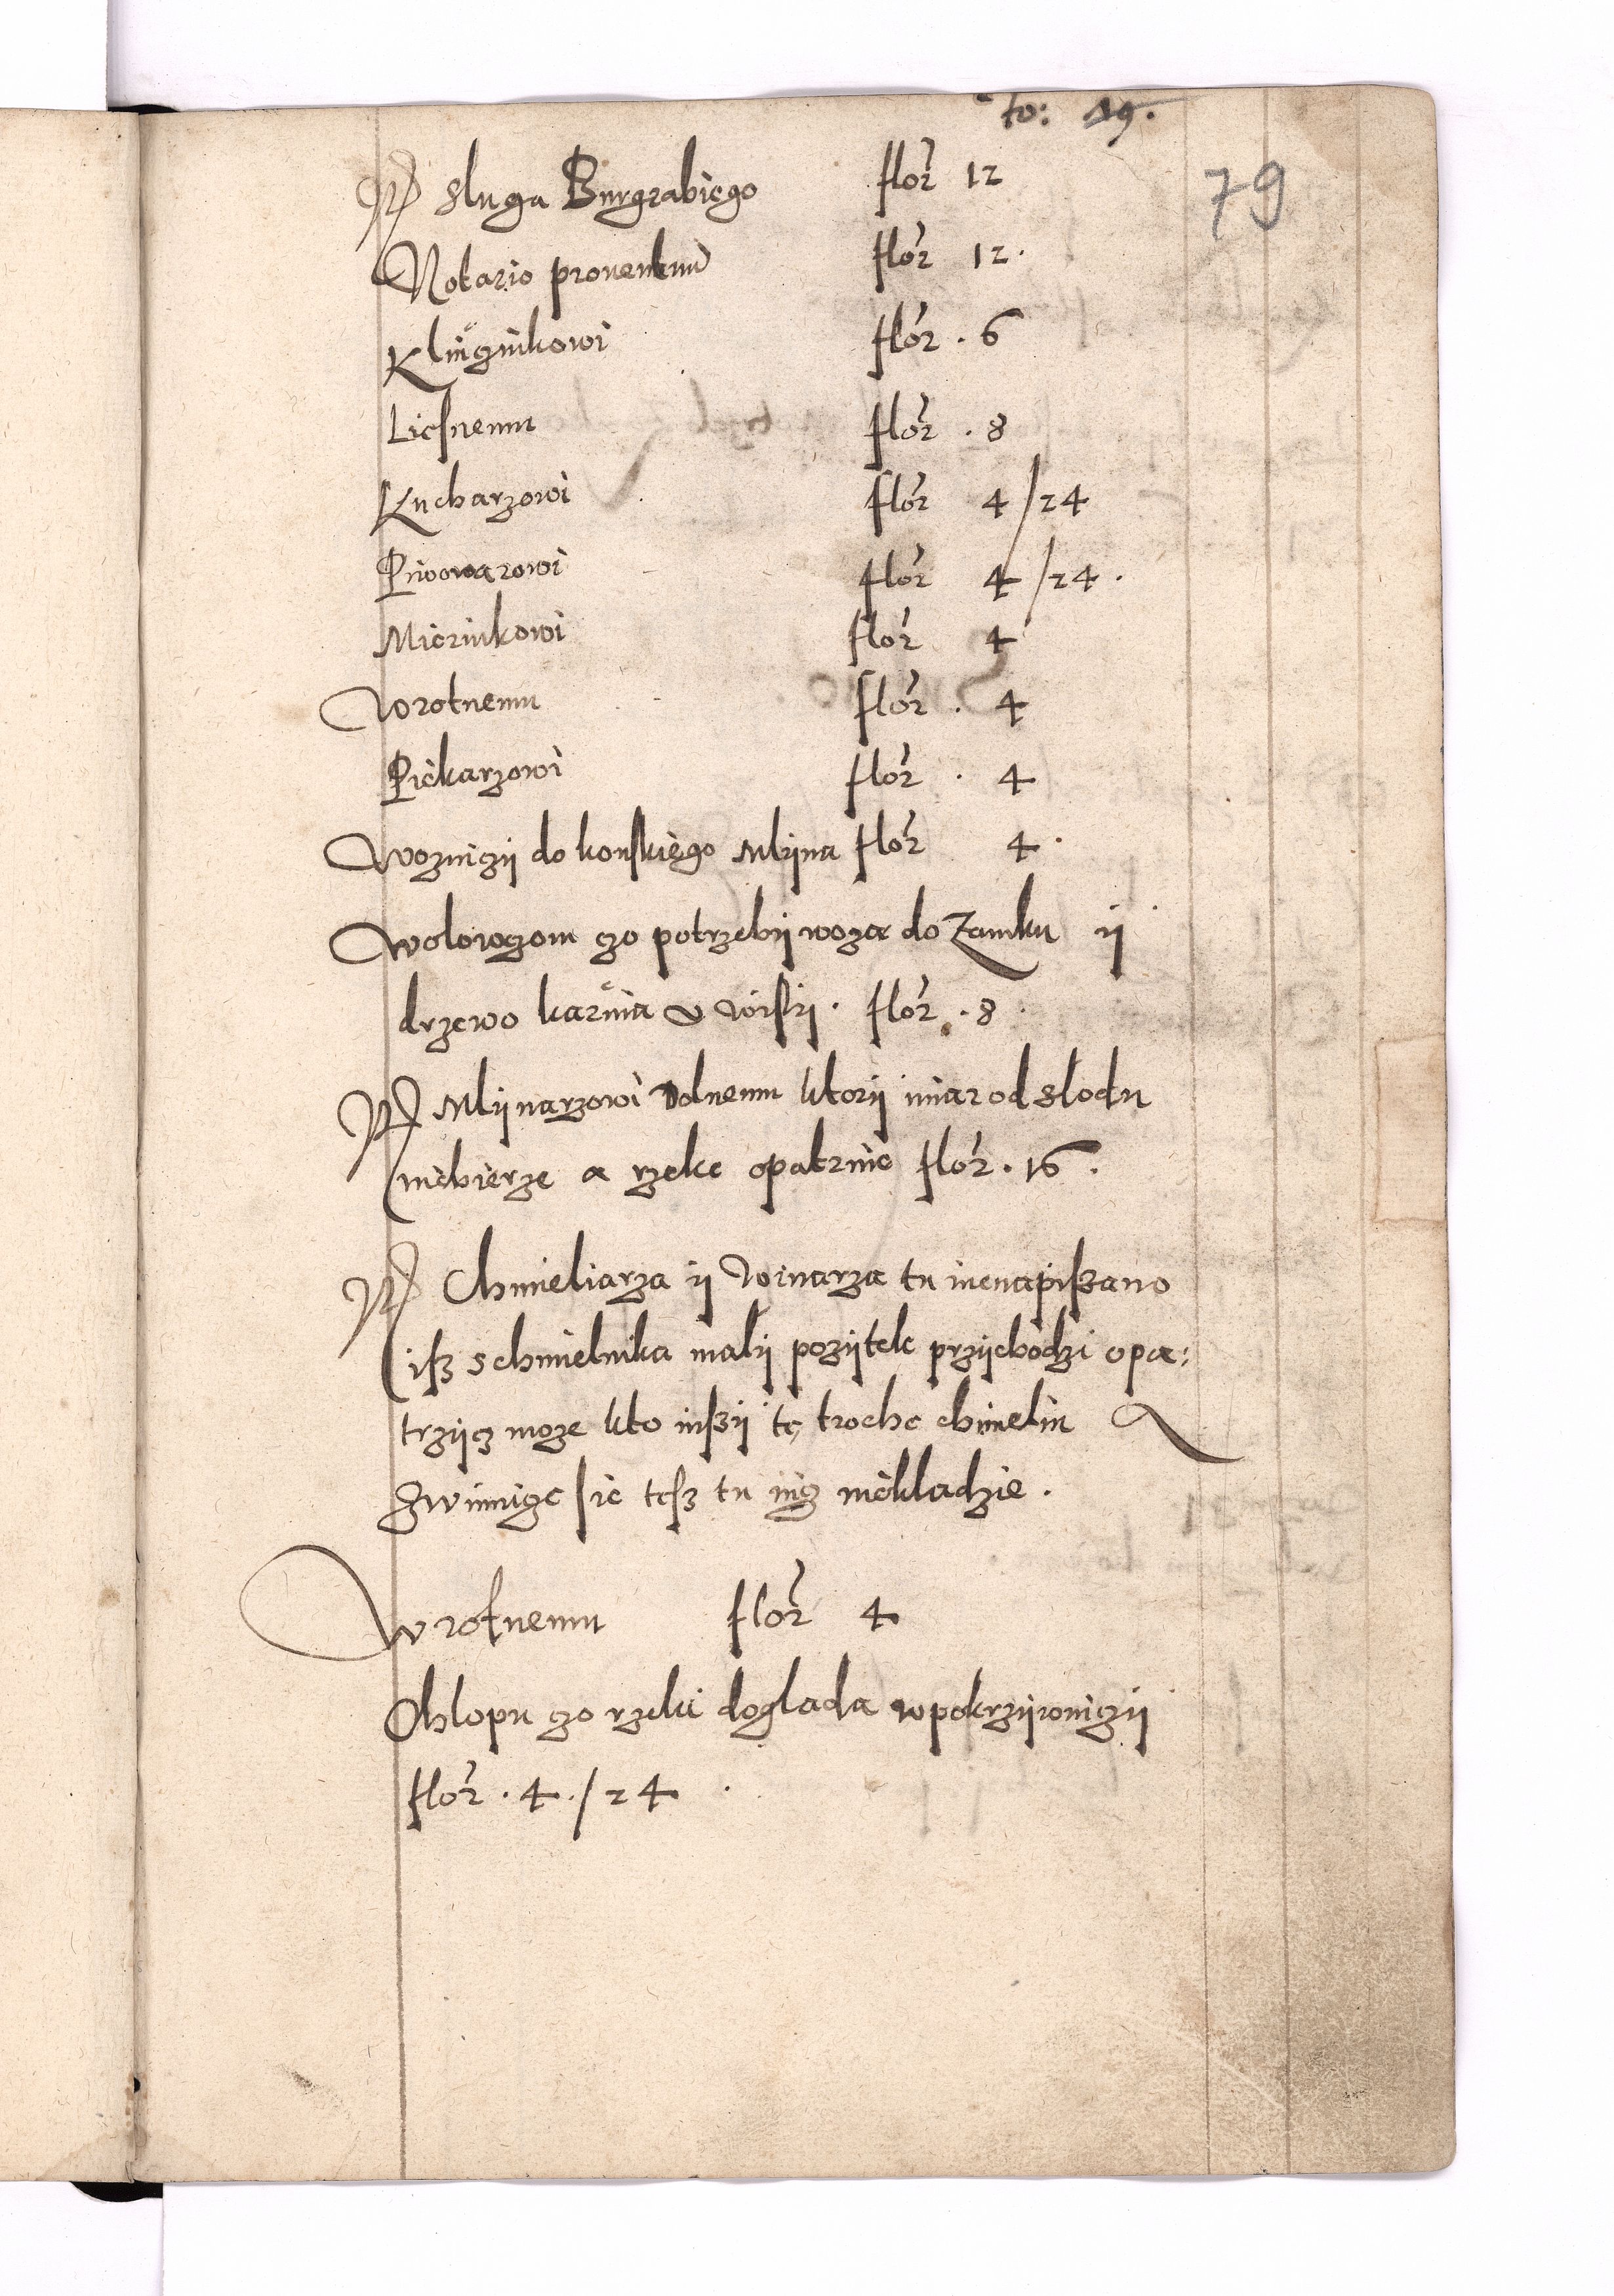 fo: 79.
79
N sluga Burgrabiego flor 12
Notario prouentuu flor 12.
Kluczinkowi flor . 6
Liesnemu flor . 8
Kucharzowi flor 4/24
Piwowarowi flor 4/24.
Miernikowi flor 4
Wrotnemu flor . 4
Piekarzowi flor . 4
Wozniczij do konskiego Mlijna flor 4.
Wolowczom czo potrzebij woza do Zamku ij
drzewo karmia wolij . flor . 8
N Mlijnarzowi dolnemu ktorij miar od slodu
niebierze a rzeke opatruie flor . 16.
N Chmieliarza ij Winarza tu nienapiszano
isz schmielnika malij pozijtek przijchodzi opa:
trzijcz moze kto inszij te troche chmieliu A
Zwinnicze sie tesz tu nicz niekladzie.
Wrotnemu flor 4
Chlopu czo rzeki doglada wpokrzijwniczij
flor . 4./24